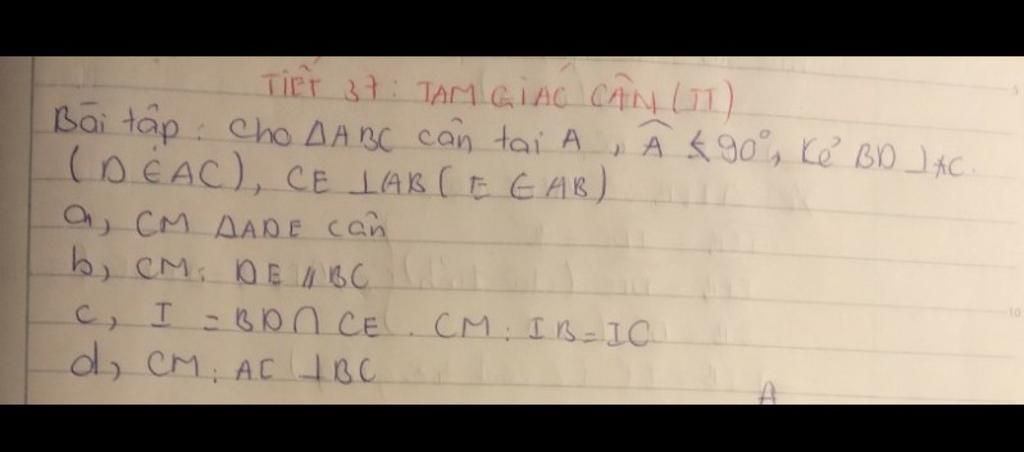 TIẾT 37: TAM GIÁC CÂN (TT)
Bài tập: Cho ΔABC cân tại A, Â ≤ 90°, Kẻ BD ⊥ AC.
(D ∈ AC), CE ⊥ AB (E ∈ AB)
a, CM ΔADE cân
b, CM: DE // BC
c, I = BD ∩ CE. CM: IB = IC
d, CM: AC ⊥ BC
A